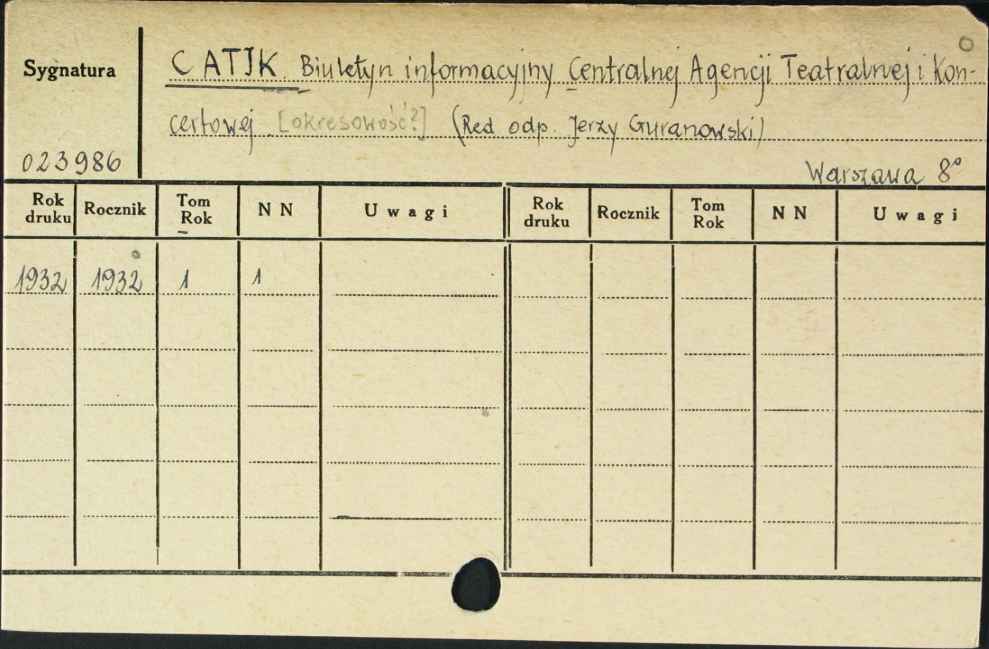 Sygnatura
CATIK Biuletyn informacyjny Centralnej Agencji Teatralnej i Kon-
certowej [okresowość?] (Red odp. Jerzy Guranowski)
023986
Warszawa 8°
Rok druku Rocznik Tom Rok NN Uwagi Rok druku Rocznik Tom Rok NN Uwagi
1932 1932 1 1